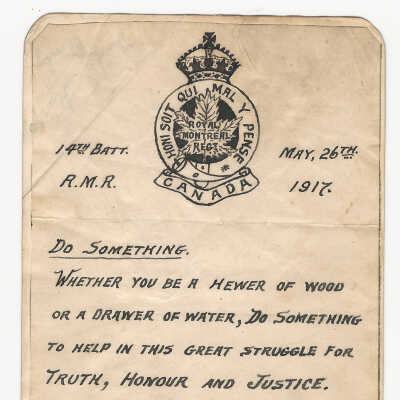 HONI SOIT QUI MAL Y PENSE
ROYAL
MONTREAL
REGT
CANADA
14TH BATT.
R.M.R.
MAY, 26TH
1917.
DO SOMETHING.
WHETHER YOU BE A HEWER OF WOOD
OR A DRAWER OF WATER, DO SOMETHING
TO HELP IN THIS GREAT STRUGGLE FOR
TRUTH, HONOUR AND JUSTICE.